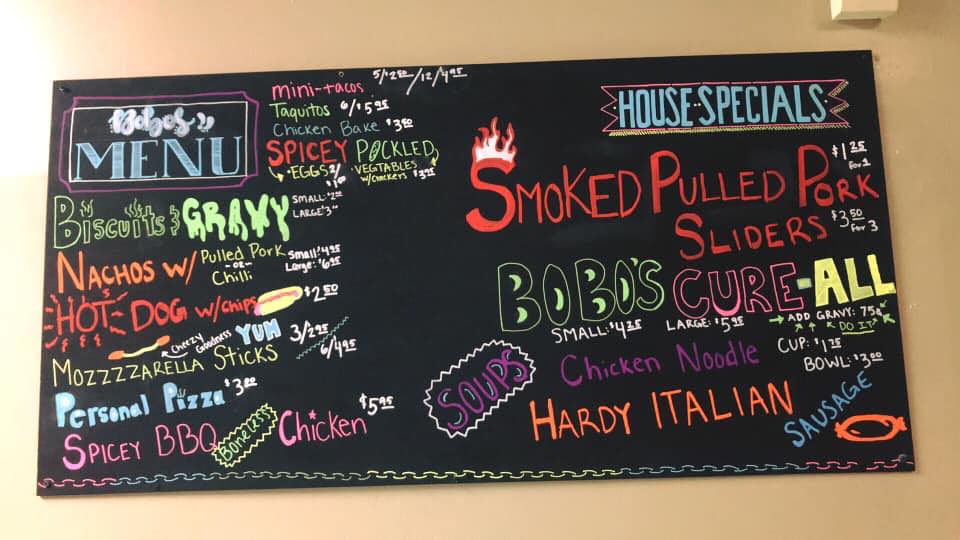 Bobo's
MENU
mini-tacos 5/$2.50/12/$4.95
Taquitos 6/$5.95
Chicken Bake $3.00
SPICEY PICKLED
EGGS 2/$1.00
VEGTABLES
w/crackers $3.95
Biscuits & GRAVY
SMALL: $2.00
LARGE $3.00
NACHOS W/ Pulled Pork
-OR-
Chilli
Small: $4.95
Large: $6.95
HOT DOG w/chips $2.50
Cheezy Goodness
YUM 3/2.95
6/4.95
MOZZZZARELLA STICKS
Personal Pizza $3.00
SPICEY BBQ Boneless Chicken $5.95
HOUSE SPECIALS
SMOKED PULLED PORK
SLIDERS
$1.25 For 1
$3.50 For 3
BOBO'S CURE-ALL
SMALL: $4.25 LARGE: $5.95
ADD GRAVY: 75¢
DO IT
SOUPS
CUP: $1.75
BOWL: $3.00
Chicken Noodle
HARDY ITALIAN SAUSAGE